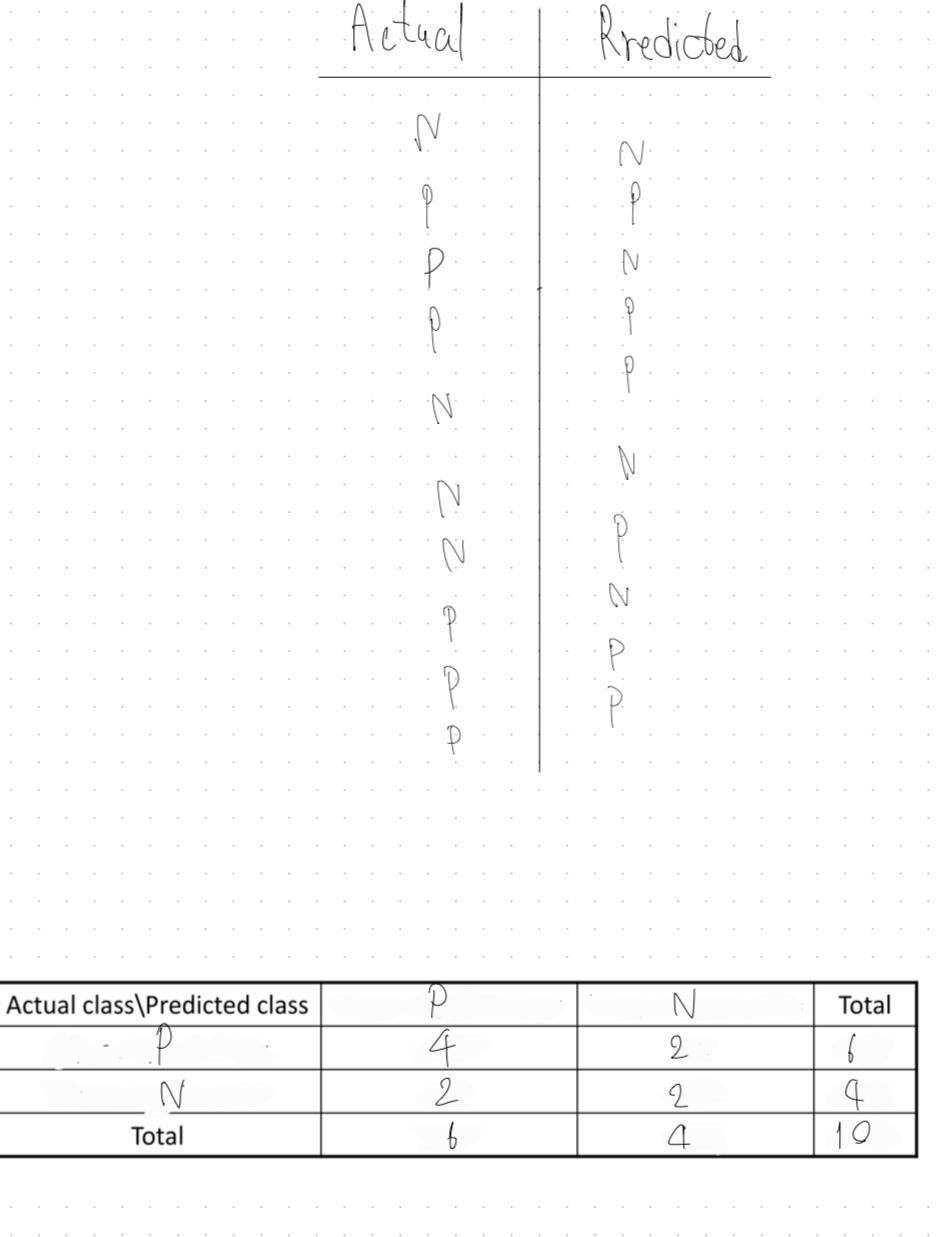 Actual Rredicted
N N
P P
P N
P P
N P
N N
N P
P N
P P
P P
Actual class\Predicted class P N Total
P 4 2 6
N 2 2 4
Total 6 4 10